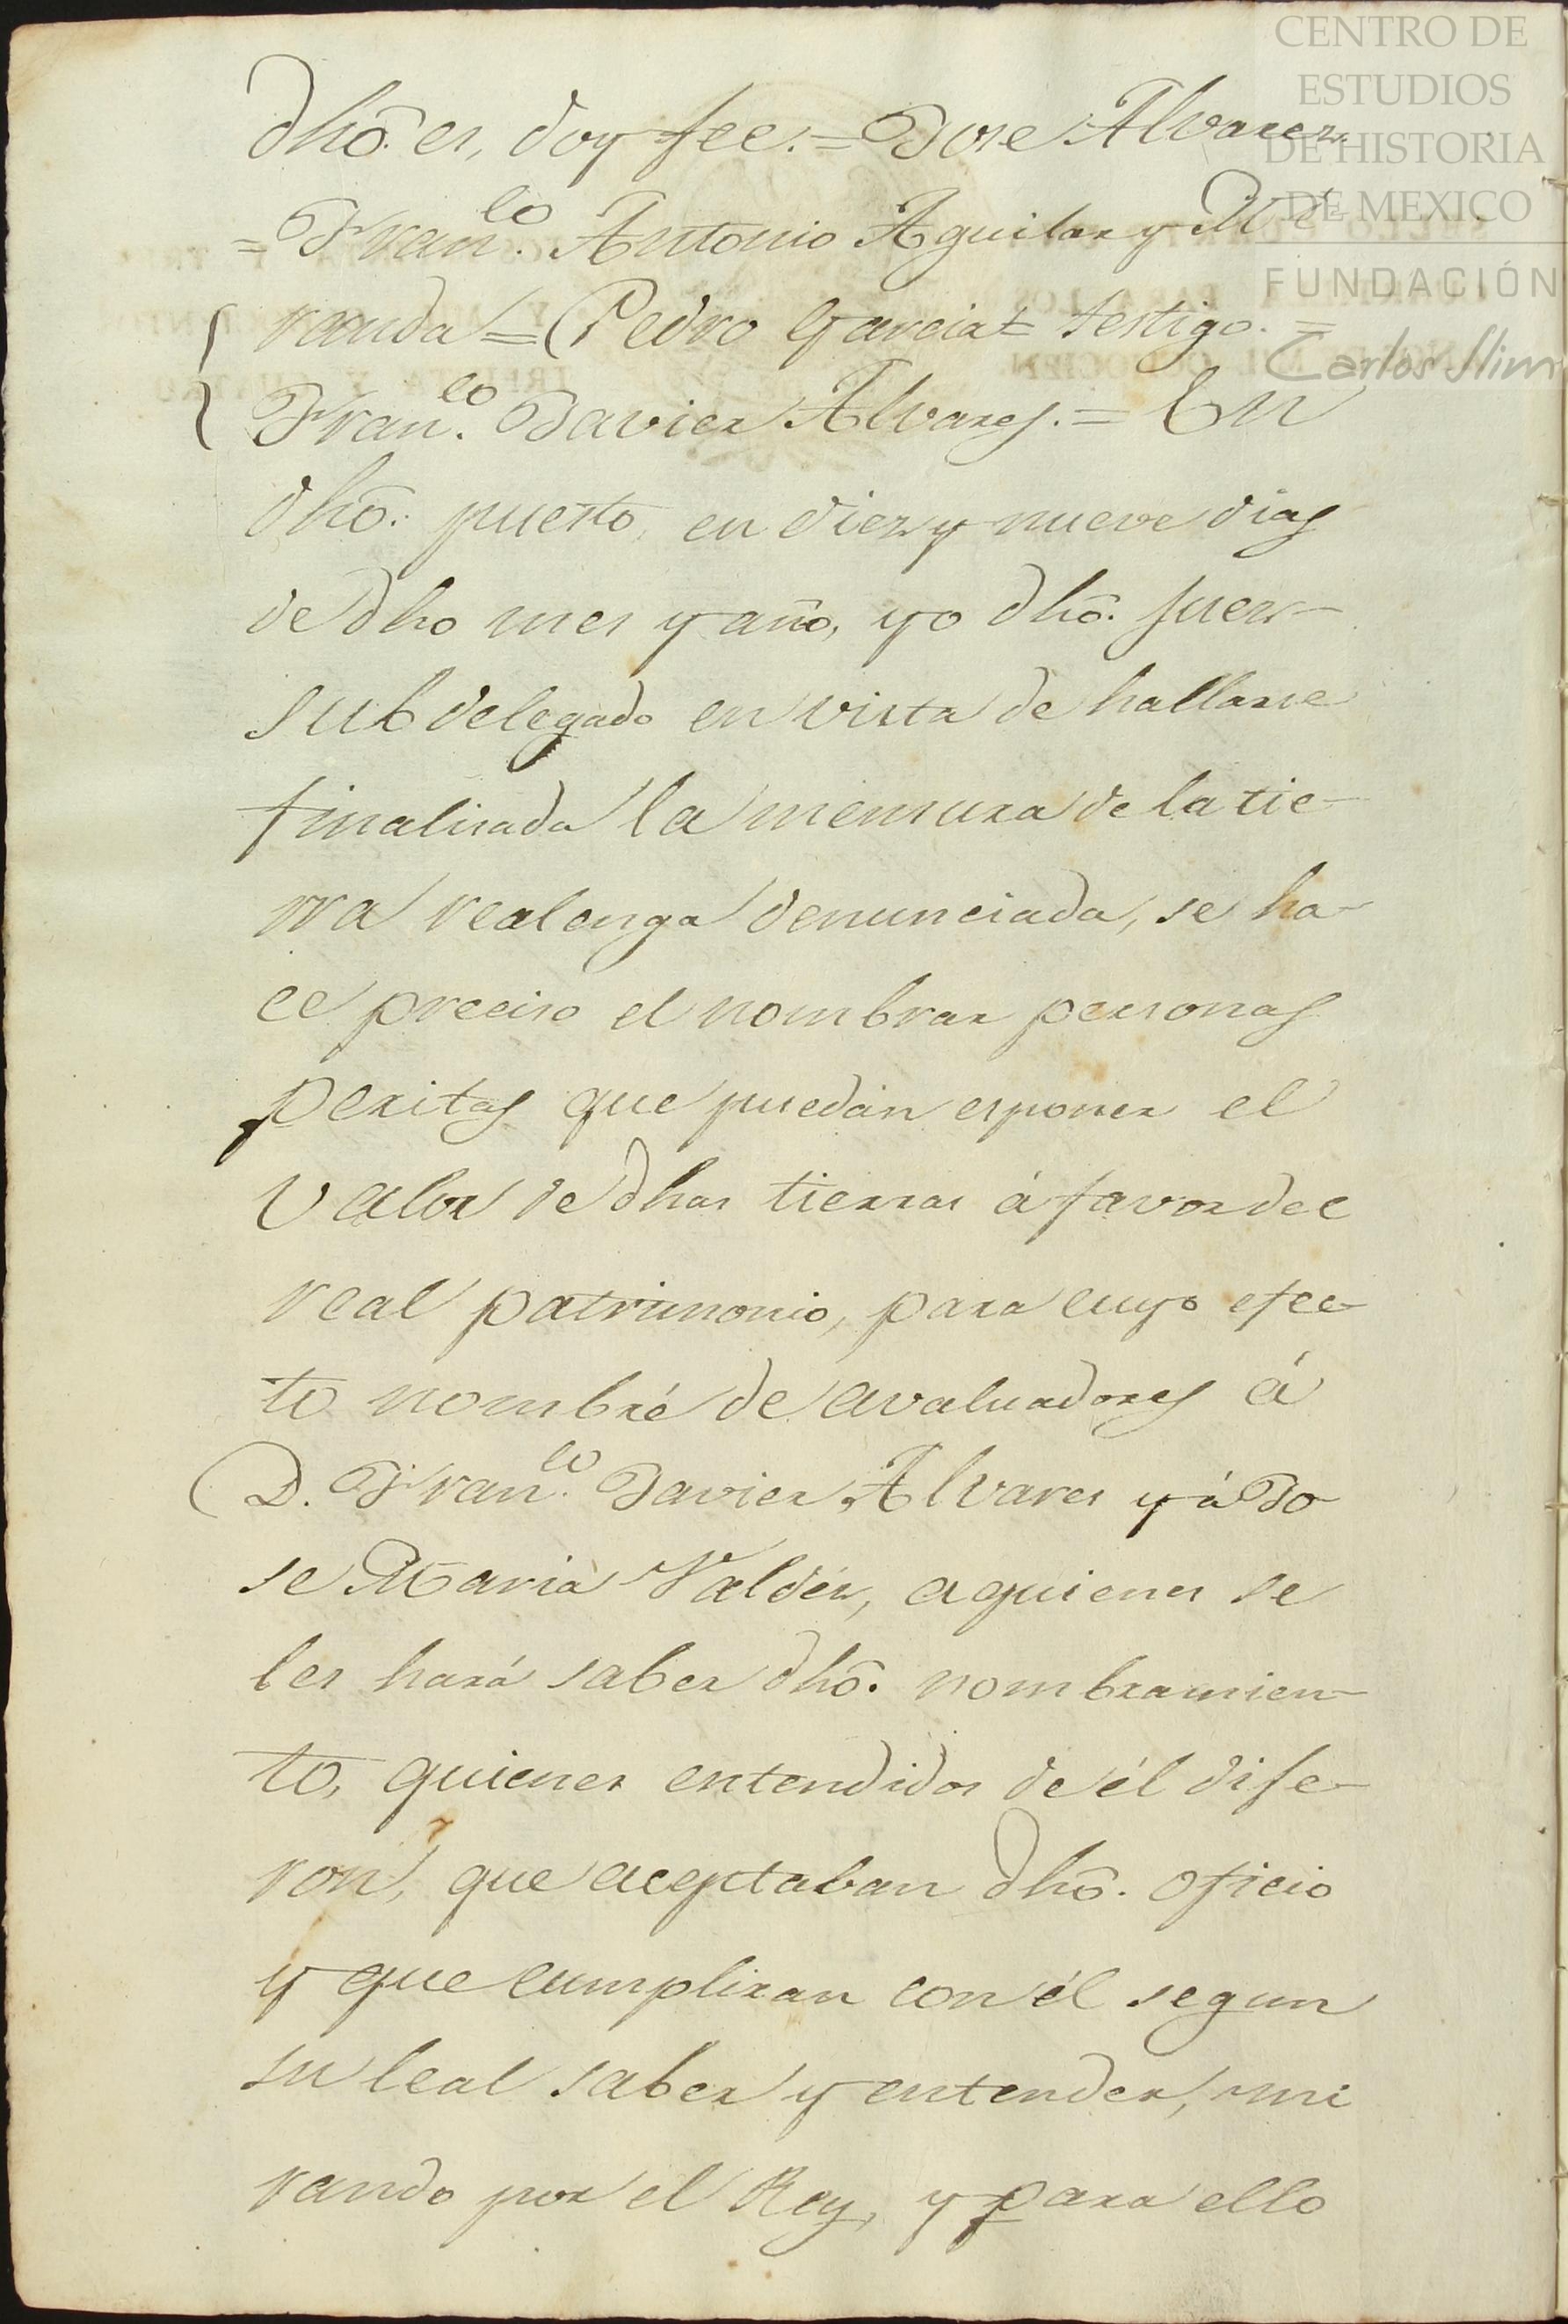 CENTRO DE
ESTUDIOS
DE HISTORIA
DE MEXICO
FUNDACIÓN
Carlos Slim
dhō. es, doy fee. = Jose Alvarez
= Fran.co Antonio Aguilar y Mi-
randa = Pedro Garcia = testigo. =
Fran.co Javier Alvares. = En
dhō. puerto, en diez y nueve dias
de dho mes y año, yo dhō. juez
subdelegado en vista de hallarse
finalisada la mensura de la tie-
rra realenga denunciada, se ha-
ce preciso el nombrar personas
peritas que puedan esponer el
valor de dhas tierras á favor del
real patrimonio, para cuyo efec-
to nombré de avaluadores á
D. Fran.co Javier Alvares y á Jo
se Maria Valdéz, a quienes se
les hará saber dhō. nombramien-
to, quienes entendidos de él dije-
ron, que aceptaban dhō. oficio
y que cumpliran con él segun
su leal saber y entender, mi
rando por el Rey, y para ello